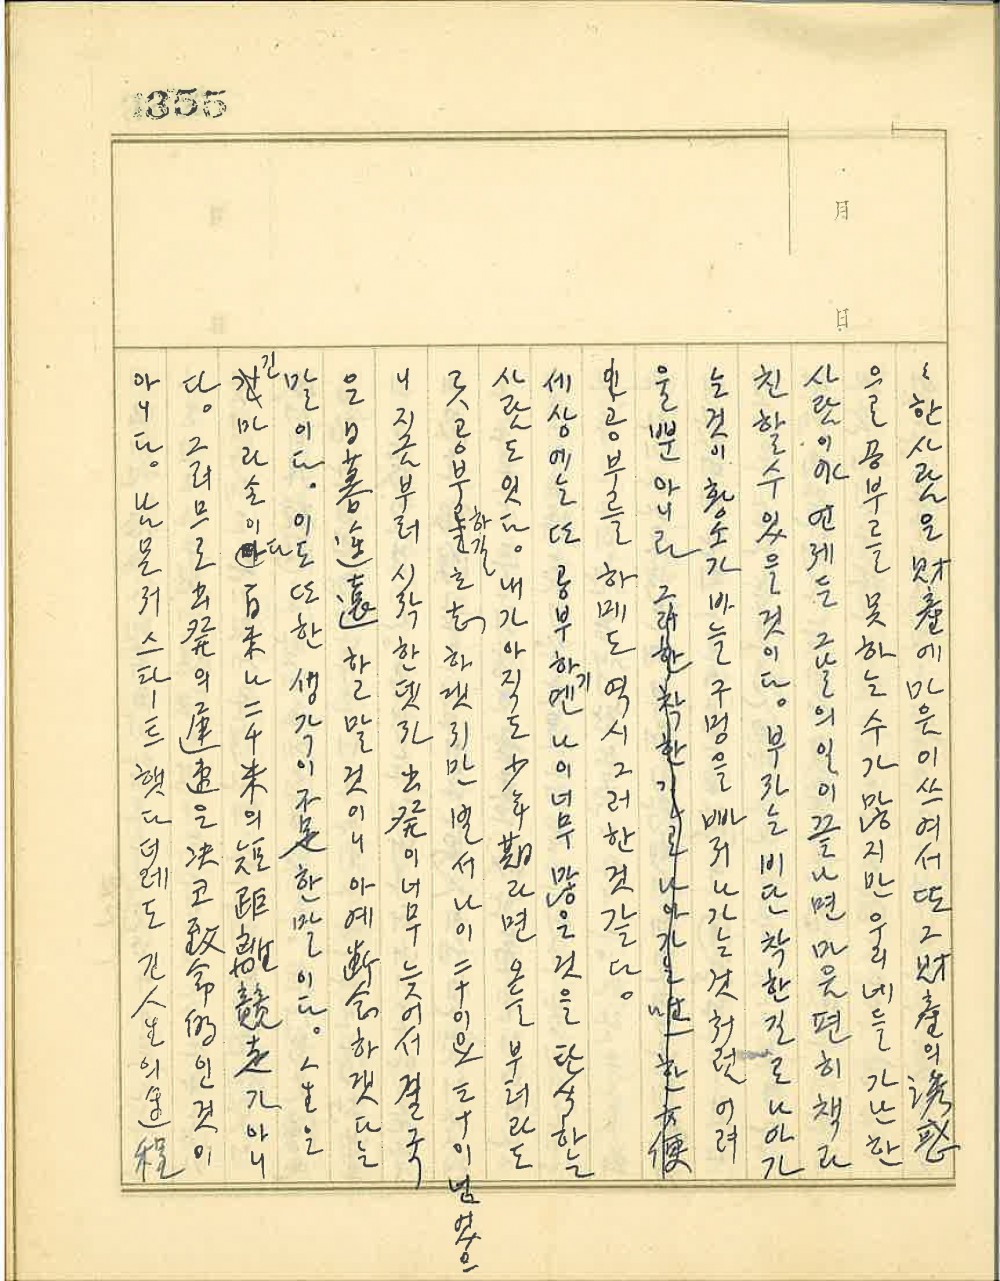 1355
月
日
한 사람은 財産에 마음이 쓰여서 또 그 財産의 誘惑
으로 공부를 못하는 수가 많지만 우리네들 가난한
사람이야 언제든 그날의 일이 끝나면 마음 편히 책과
친할 수 있을 것이다. 부자는 비단 착한 길로 나아가
는 것이 황소가 바늘구멍을 빠져나가는 것처럼 어려
울 뿐 아니라 그러한 착한 길로 나아가는 한 方便
인 공부를 하메도 역시 그러한 것 같다.
세상에는 또 공부하기엔 나이 너무 많은 것을 탄식하는
사람도 잇다. 내가 아직도 少年期라면 온을 부터라도
곳 공부하길 하겟지만 벌서 나이 二十이요 三十이 넘엇으
니 지금부터 시작한댓자 出発이 너무 늦어서 결국
은 日暮途遠하고 말 것이니 아예 断念하겟다는
말이다. 이도 또한 생각이 不足한 말이다. 人生은
긴 마라손이다 百米나 二千米의 短距離競走가 아니
다. 그러므로 出発의 遅速은 决코 致命的인 것이
아니다. 남 몬저 스타ー트 햇다더레도 긴 人生의 途程